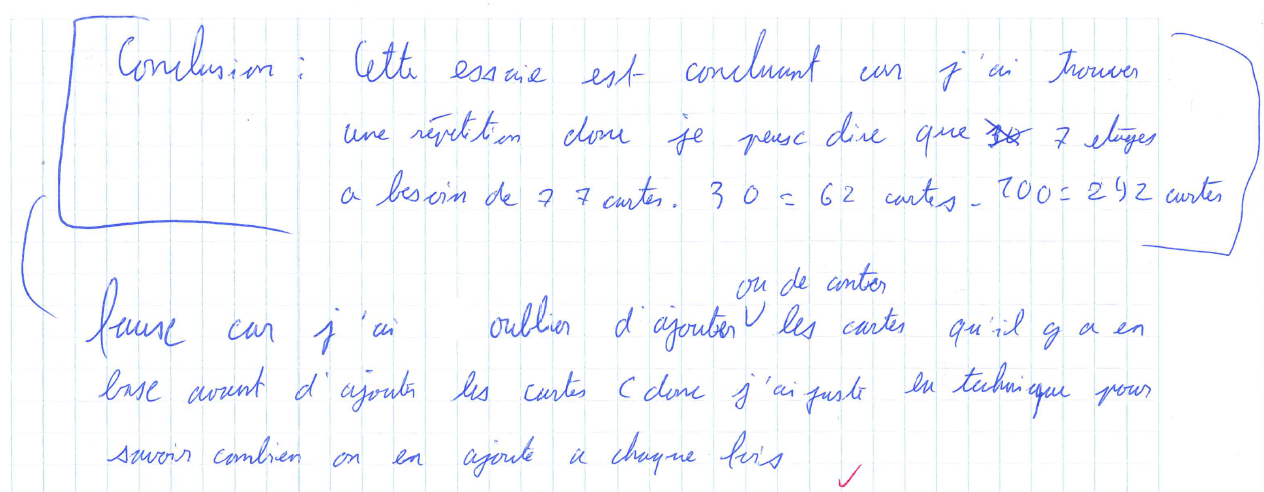 Conclusion : Cette essaie est concluant car j'ai trouver
une répétition donc je peusc dire que 7 etages
a besoin de 77 cartes. 30 = 62 cartes - 100 = 242 cartes
ou de conter
fause car j'ai oublier d'ajouter les cartes qu'il y a en
base avant d'ajouté les cartes (donc j'ai juste eu technique pour
savoir combien on en ajouté a chaque fois